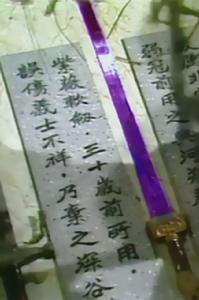 河朔
弱冠前用之
紫薇軟劍．三十歲前所用．
誤傷義士不祥．乃棄之深谷